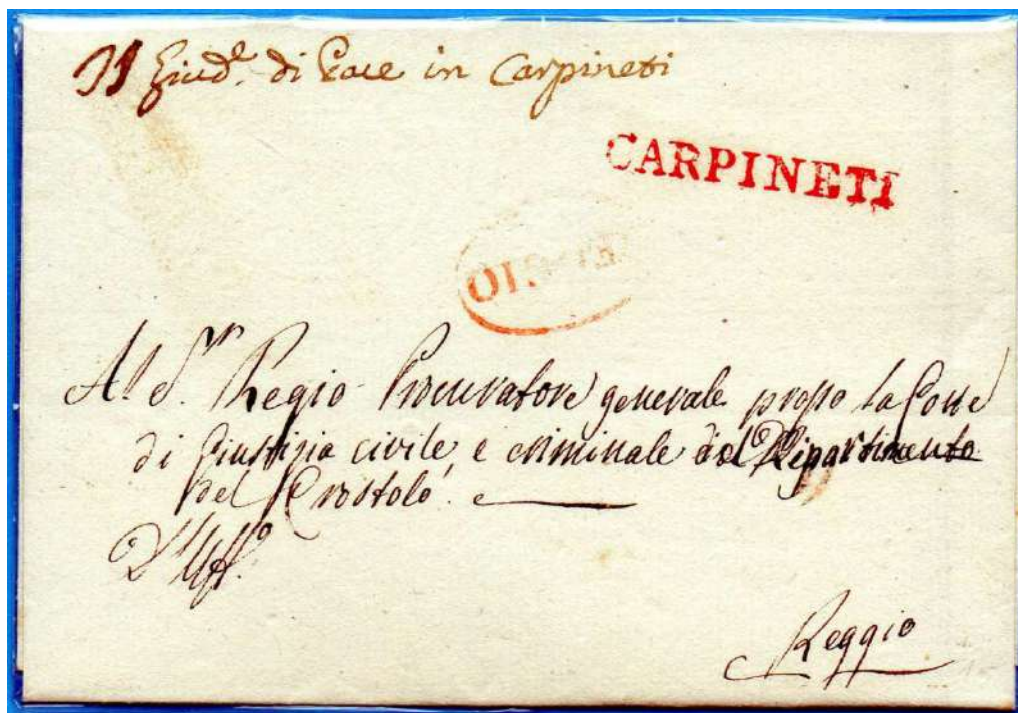 Il Giud.e di Pace in Carpineti
CARPINETI
Al S.r Regio Procuratore generale presso la Corte
di Giustizia civile, e criminale del Dipartimento
del Crostolo.
D'Uff.o
Reggio